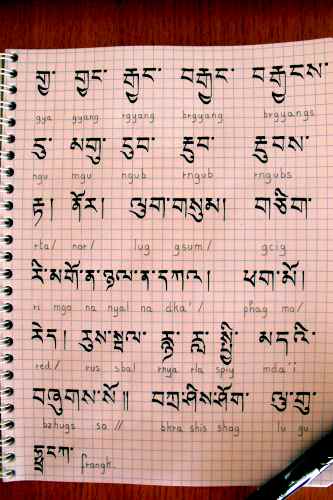 གྱ་ གྱང་ རྒྱང་ བརྒྱང་ བརྒྱངས་
gya gyang rgyang brgyang brgyangs
ངུ་ མགུ་ ངུབ་ རྔུབ་ རྔུབས་
ngu mgu ngub rngub rngubs
རྟ། ནོར། ལུག་གསུམ། གཅིག་
rta/ nor/ lug gsum/ gcig
རི་མགོ་ན་ཉལ་ན་དཀའ། ཕག་མོ།
ri mgo na nyal na dka'/ phag mo/
རེད། རུས་སྦལ་ རྙ་ རླ་ སྤྱི་ མདའི་
red/ rus sbal rnya rla spiy mda'i
བཞུགས་སོ༎ བཀྲ་ཤིས་ཤོག་ ལུ་གུ་
bzhugs so // bkra shis shog lu gu
ཧྥྲངཀ་ frangk.